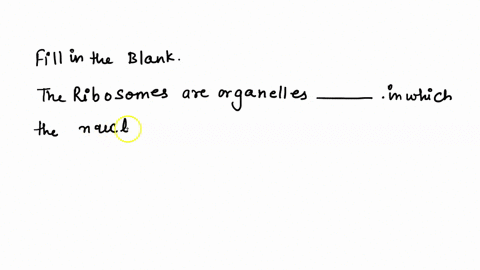 Fill in the Blank.
The Ribosomes are organelles ______ . in which
the nucl